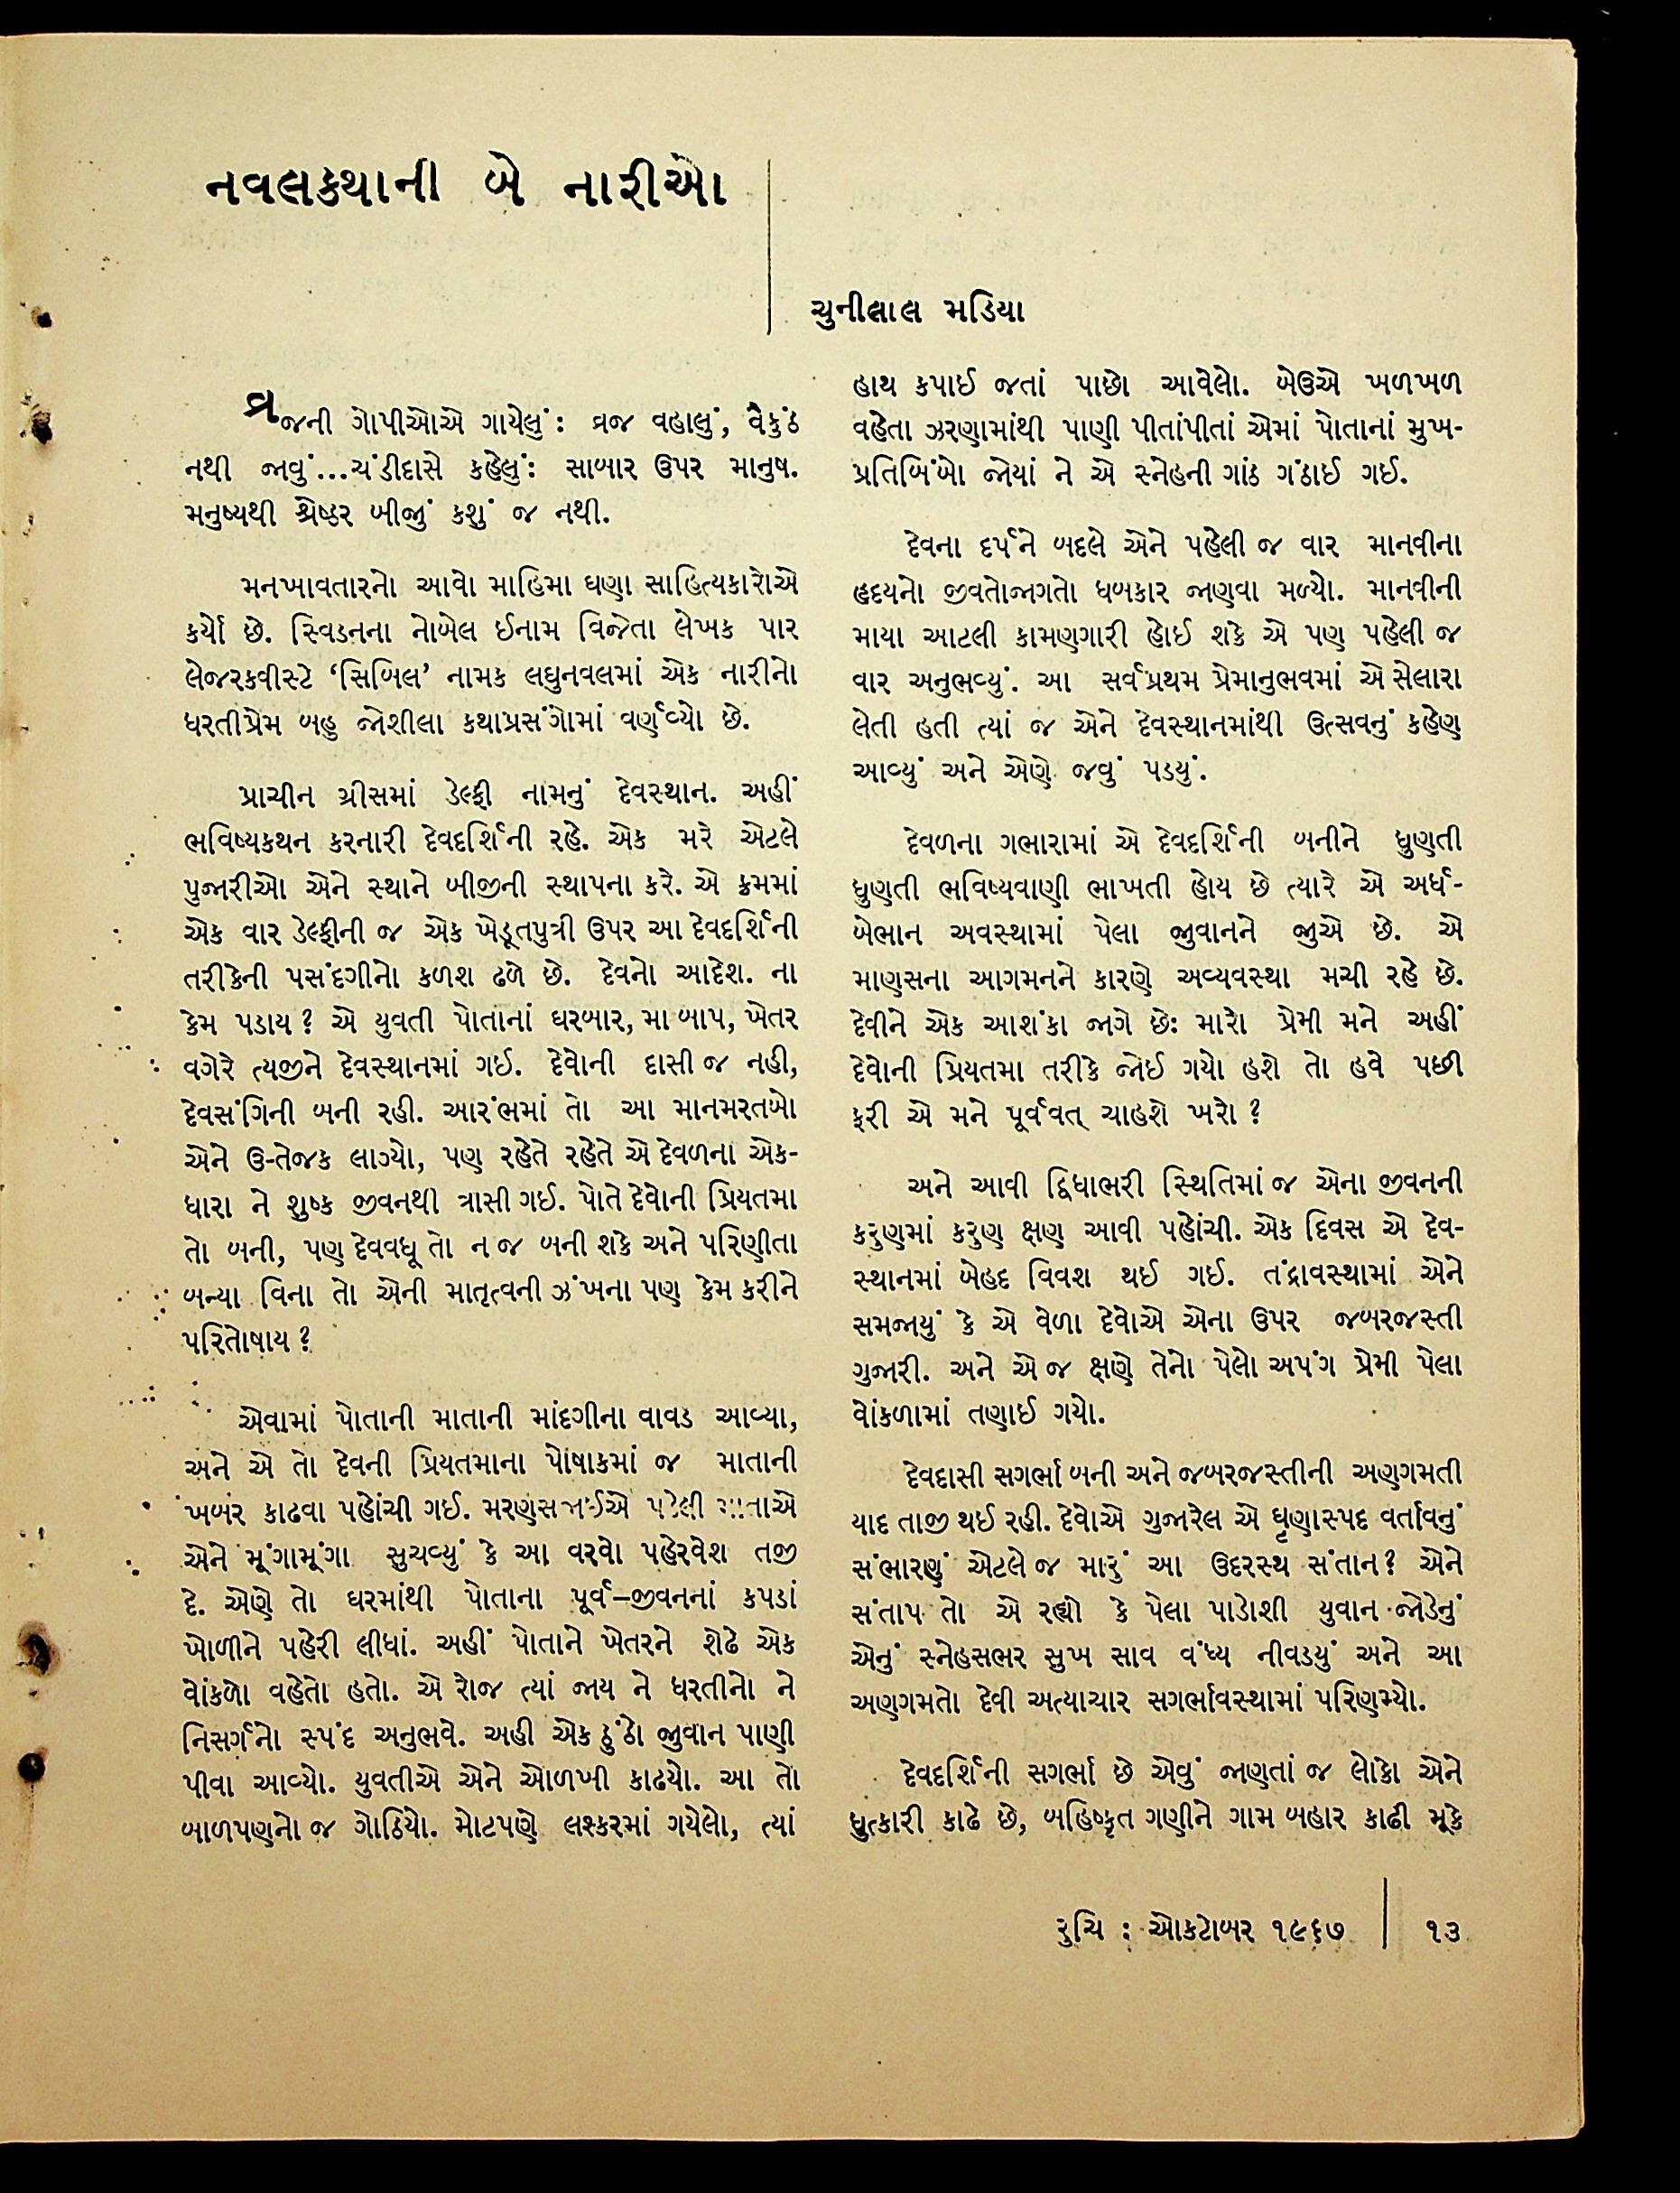 નવલકથાની બે નારીઓ
ચુનીલાલ મડિયા
વ્રજની ગોપીઓએ ગાયેલું: વ્રજ વહાલું, વૈકુંઠ
નથી જાવું...ચંડીદાસે કહેલું: સાબાર ઉપર માનુષ.
મનુષ્યથી શ્રેષ્ઠર બીજું કશું જ નથી.
મનખાવતારનો આવો માહિમા ઘણા સાહિત્યકારોએ
કર્યો છે. સ્વિડનના નોબેલ ઈનામ વિજેતા લેખક પાર
લેજરકવીસ્ટે ‘સિબિલ’ નામક લઘુનવલમાં એક નારીનો
ધરતીપ્રેમ બહુ જોશીલા કથાપ્રસંગોમાં વર્ણવ્યો છે.
પ્રાચીન ગ્રીસમાં ડેલ્ફી નામનું દેવસ્થાન. અહીં
ભવિષ્યકથન કરનારી દેવદર્શિની રહે. એક મરે એટલે
પુજારીઓ એને સ્થાને બીજીની સ્થાપના કરે. એ ક્રમમાં
એક વાર ડેલ્ફીની જ એક ખેડૂતપુત્રી ઉપર આ દેવદર્શિની
તરીકેની પસંદગીનો કળશ ઢળે છે. દેવનો આદેશ. ના
કેમ પડાય? એ યુવતી પોતાનાં ઘરબાર, મા બાપ, ખેતર
વગેરે ત્યજીને દેવસ્થાનમાં ગઈ. દેવોની દાસી જ નહી,
દેવસંગિની બની રહી. આરંભમાં તો આ માનમરતબો
એને ઉત્તેજક લાગ્યો, પણ રહેતે રહેતે એ દેવળના એક-
ધારા ને શુષ્ક જીવનથી ત્રાસી ગઈ. પોતે દેવોની પ્રિયતમા
તો બની, પણ દેવવધૂ તો ન જ બની શકે અને પરિણીતા
બન્યા વિના તો એની માતૃત્વની ઝંખના પણ કેમ કરીને
પરિતોષાય?
એવામાં પોતાની માતાની માંદગીના વાવડ આવ્યા,
અને એ તો દેવની પ્રિયતમાના પોષાકમાં જ માતાની
ખબર કાઢવા પહોંચી ગઈ. મરણસજાઈએ પડેલી માતાએ
એને મૂંગામૂંગા સુચવ્યું કે આ વરવો પહેરવેશ તજી
દે. એણે તો ઘરમાંથી પોતાના પૂર્વ–જીવનનાં કપડાં
ખોળીને પહેરી લીધાં. અહીં પોતાને ખેતરને શેઢે એક
વોંકળો વહેતો હતો. એ રોજ ત્યાં જાય ને ધરતીનો ને
નિસર્ગનો સ્પંદ અનુભવે. અહી એક ઠુંઠો જુવાન પાણી
પીવા આવ્યો. યુવતીએ એને ઓળખી કાઢયો. આ તો
બાળપણનો જ ગોઠિયો. મોટપણે લશ્કરમાં ગયેલો, ત્યાં
હાથ કપાઈ જતાં પાછો આવેલો. બેઉએ ખળખળ
વહેતા ઝરણામાંથી પાણી પીતાંપીતાં એમાં પોતાનાં મુખ-
પ્રતિબિંબો જોયાં ને એ સ્નેહની ગાંઠ ગંઠાઈ ગઈ.
દેવના દર્પને બદલે એને પહેલી જ વાર માનવીના
હૃદયનો જીવતોજાગતો ધબકાર જાણવા મળ્યો. માનવીની
માયા આટલી કામણગારી હોઈ શકે એ પણ પહેલી જ
વાર અનુભવ્યું. આ સર્વપ્રથમ પ્રેમાનુભવમાં એ સેલારા
લેતી હતી ત્યાં જ એને દેવસ્થાનમાંથી ઉત્સવનું કહેણ
આવ્યું અને એણે જવું પડયું.
દેવળના ગભારામાં એ દેવદર્શિની બનીને ધુણતી
ધુણતી ભવિષ્યવાણી ભાખતી હોય છે ત્યારે એ અર્ધ-
બેભાન અવસ્થામાં પેલા જુવાનને જુએ છે. એ
માણસના આગમનને કારણે અવ્યવસ્થા મચી રહે છે.
દેવીને એક આશંકા જાગે છેઃ મારો પ્રેમી મને અહીં
દેવોની પ્રિયતમા તરીકે જોઈ ગયો હશે તો હવે પછી
ફરી એ મને પૂર્વવત્ ચાહશે ખરો?
અને આવી દ્વિધાભરી સ્થિતિમાં જ એના જીવનની
કરુણમાં કરુણ ક્ષણ આવી પહોંચી. એક દિવસ એ દેવ-
સ્થાનમાં બેહદ વિવશ થઈ ગઈ. તંદ્રાવસ્થામાં એને
સમજાયું કે એ વેળા દેવોએ એના ઉપર જબરજસ્તી
ગુજારી. અને એ જ ક્ષણે તેનો પેલો અપંગ પ્રેમી પેલા
વોંકળામાં તણાઈ ગયો.
દેવદાસી સગર્ભા બની અને જબરજસ્તીની અણગમતી
યાદ તાજી થઈ રહી. દેવોએ ગુજારેલ એ ઘૃણાસ્પદ વર્તાવનું
સંભારણું એટલે જ મારું આ ઉદરસ્થ સંતાન? એને
સંતાપ તો એ રહ્યો કે પેલા પાડોશી યુવાન જોડેનું
એનું સ્નેહસભર સુખ સાવ વંધ્ય નીવડયું અને આ
અણગમતો દેવી અત્યાચાર સગર્ભાવસ્થામાં પરિણમ્યો.
દેવદર્શિની સગર્ભા છે એવું જાણતાં જ લોકો એને
ધુત્કારી કાઢે છે, બહિષ્કૃત ગણીને ગામ બહાર કાઢી મૂકે
રુચિ : ઓક્ટોબર ૧૯૬૭ | ૧૩